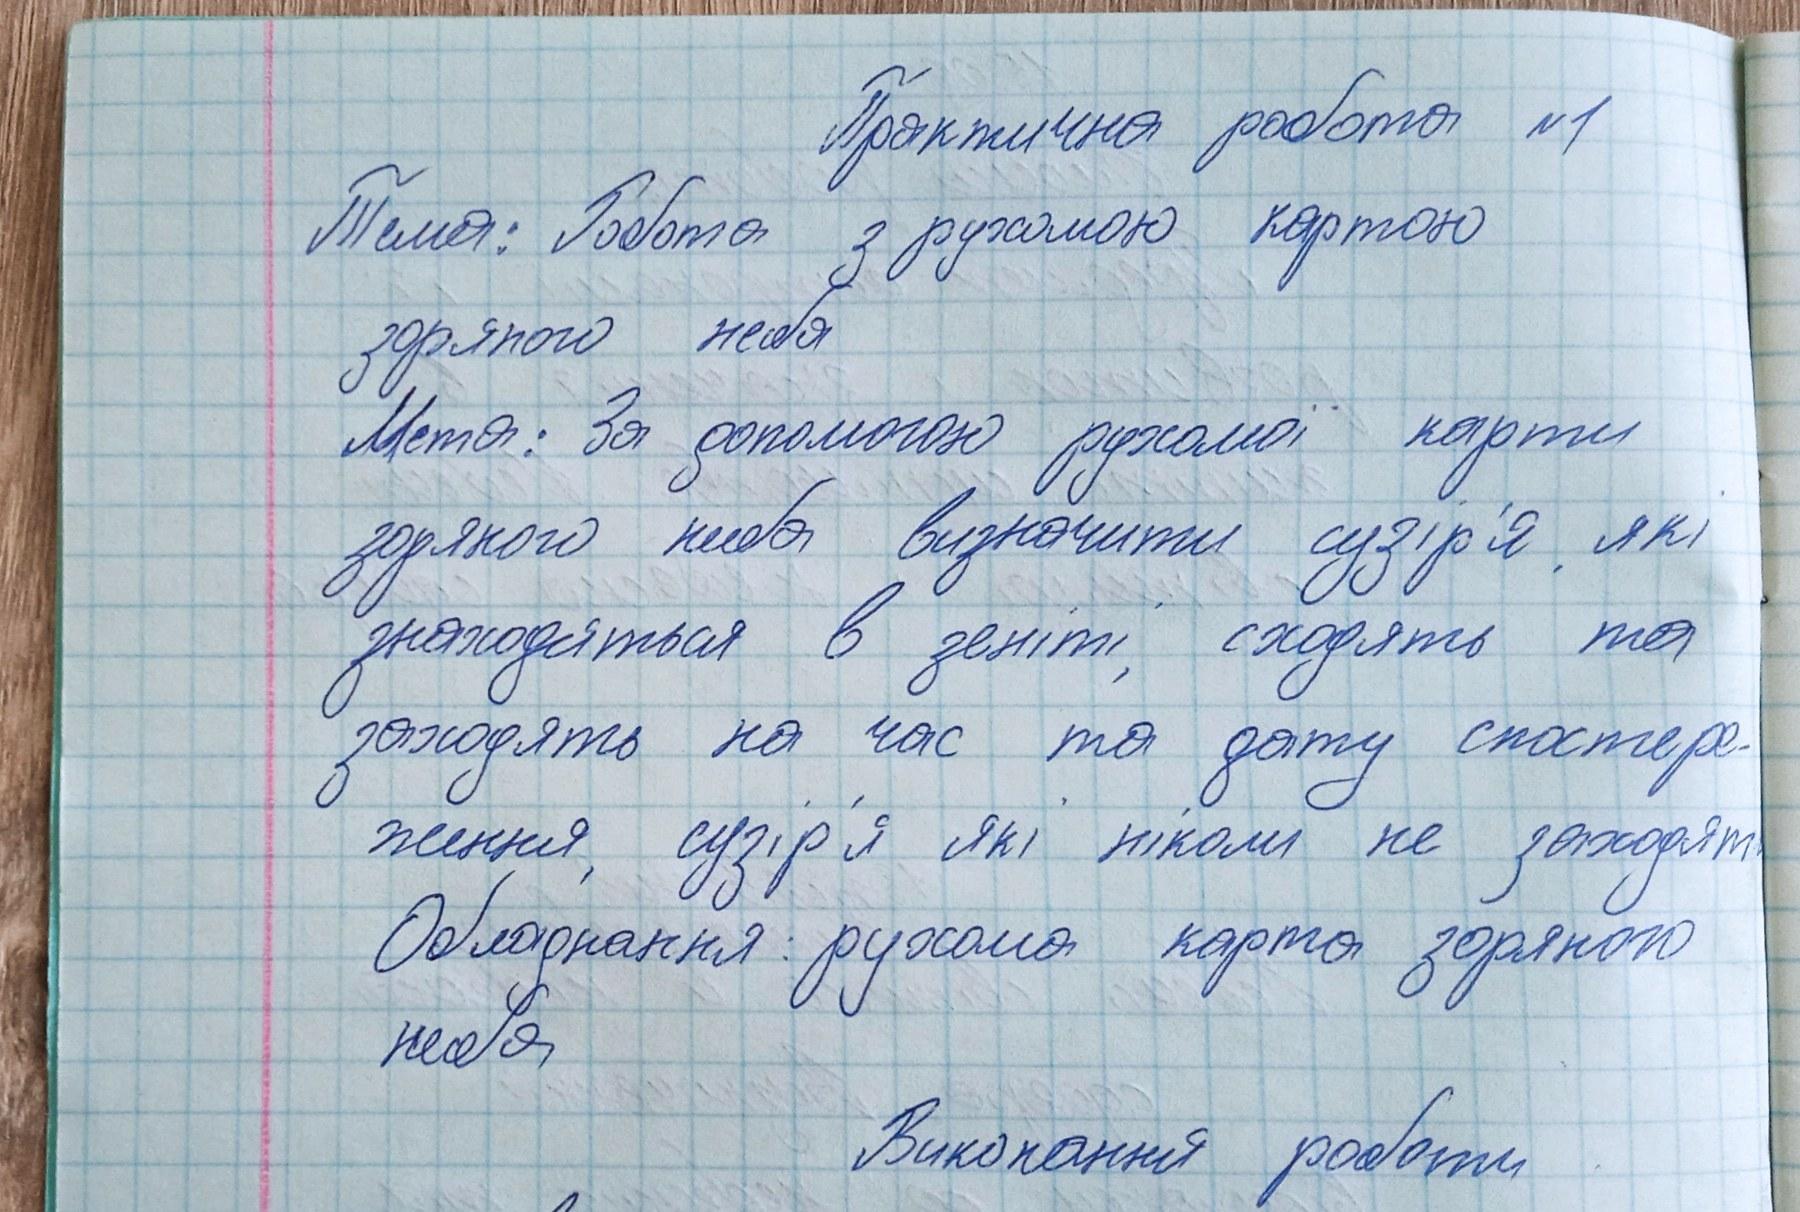 Практична робота №1
Тема: Робота з рухомою картою
зоряного неба
Мета: За допомогою рухомої карти
зоряного неба визначити сузір'я, які
знаходяться в зеніті, сходять та
заходять на час та дату спостере-
ження, сузір'я які ніколи не заходять
Обладнання: рухома карта зоряного
неба
Виконання роботи